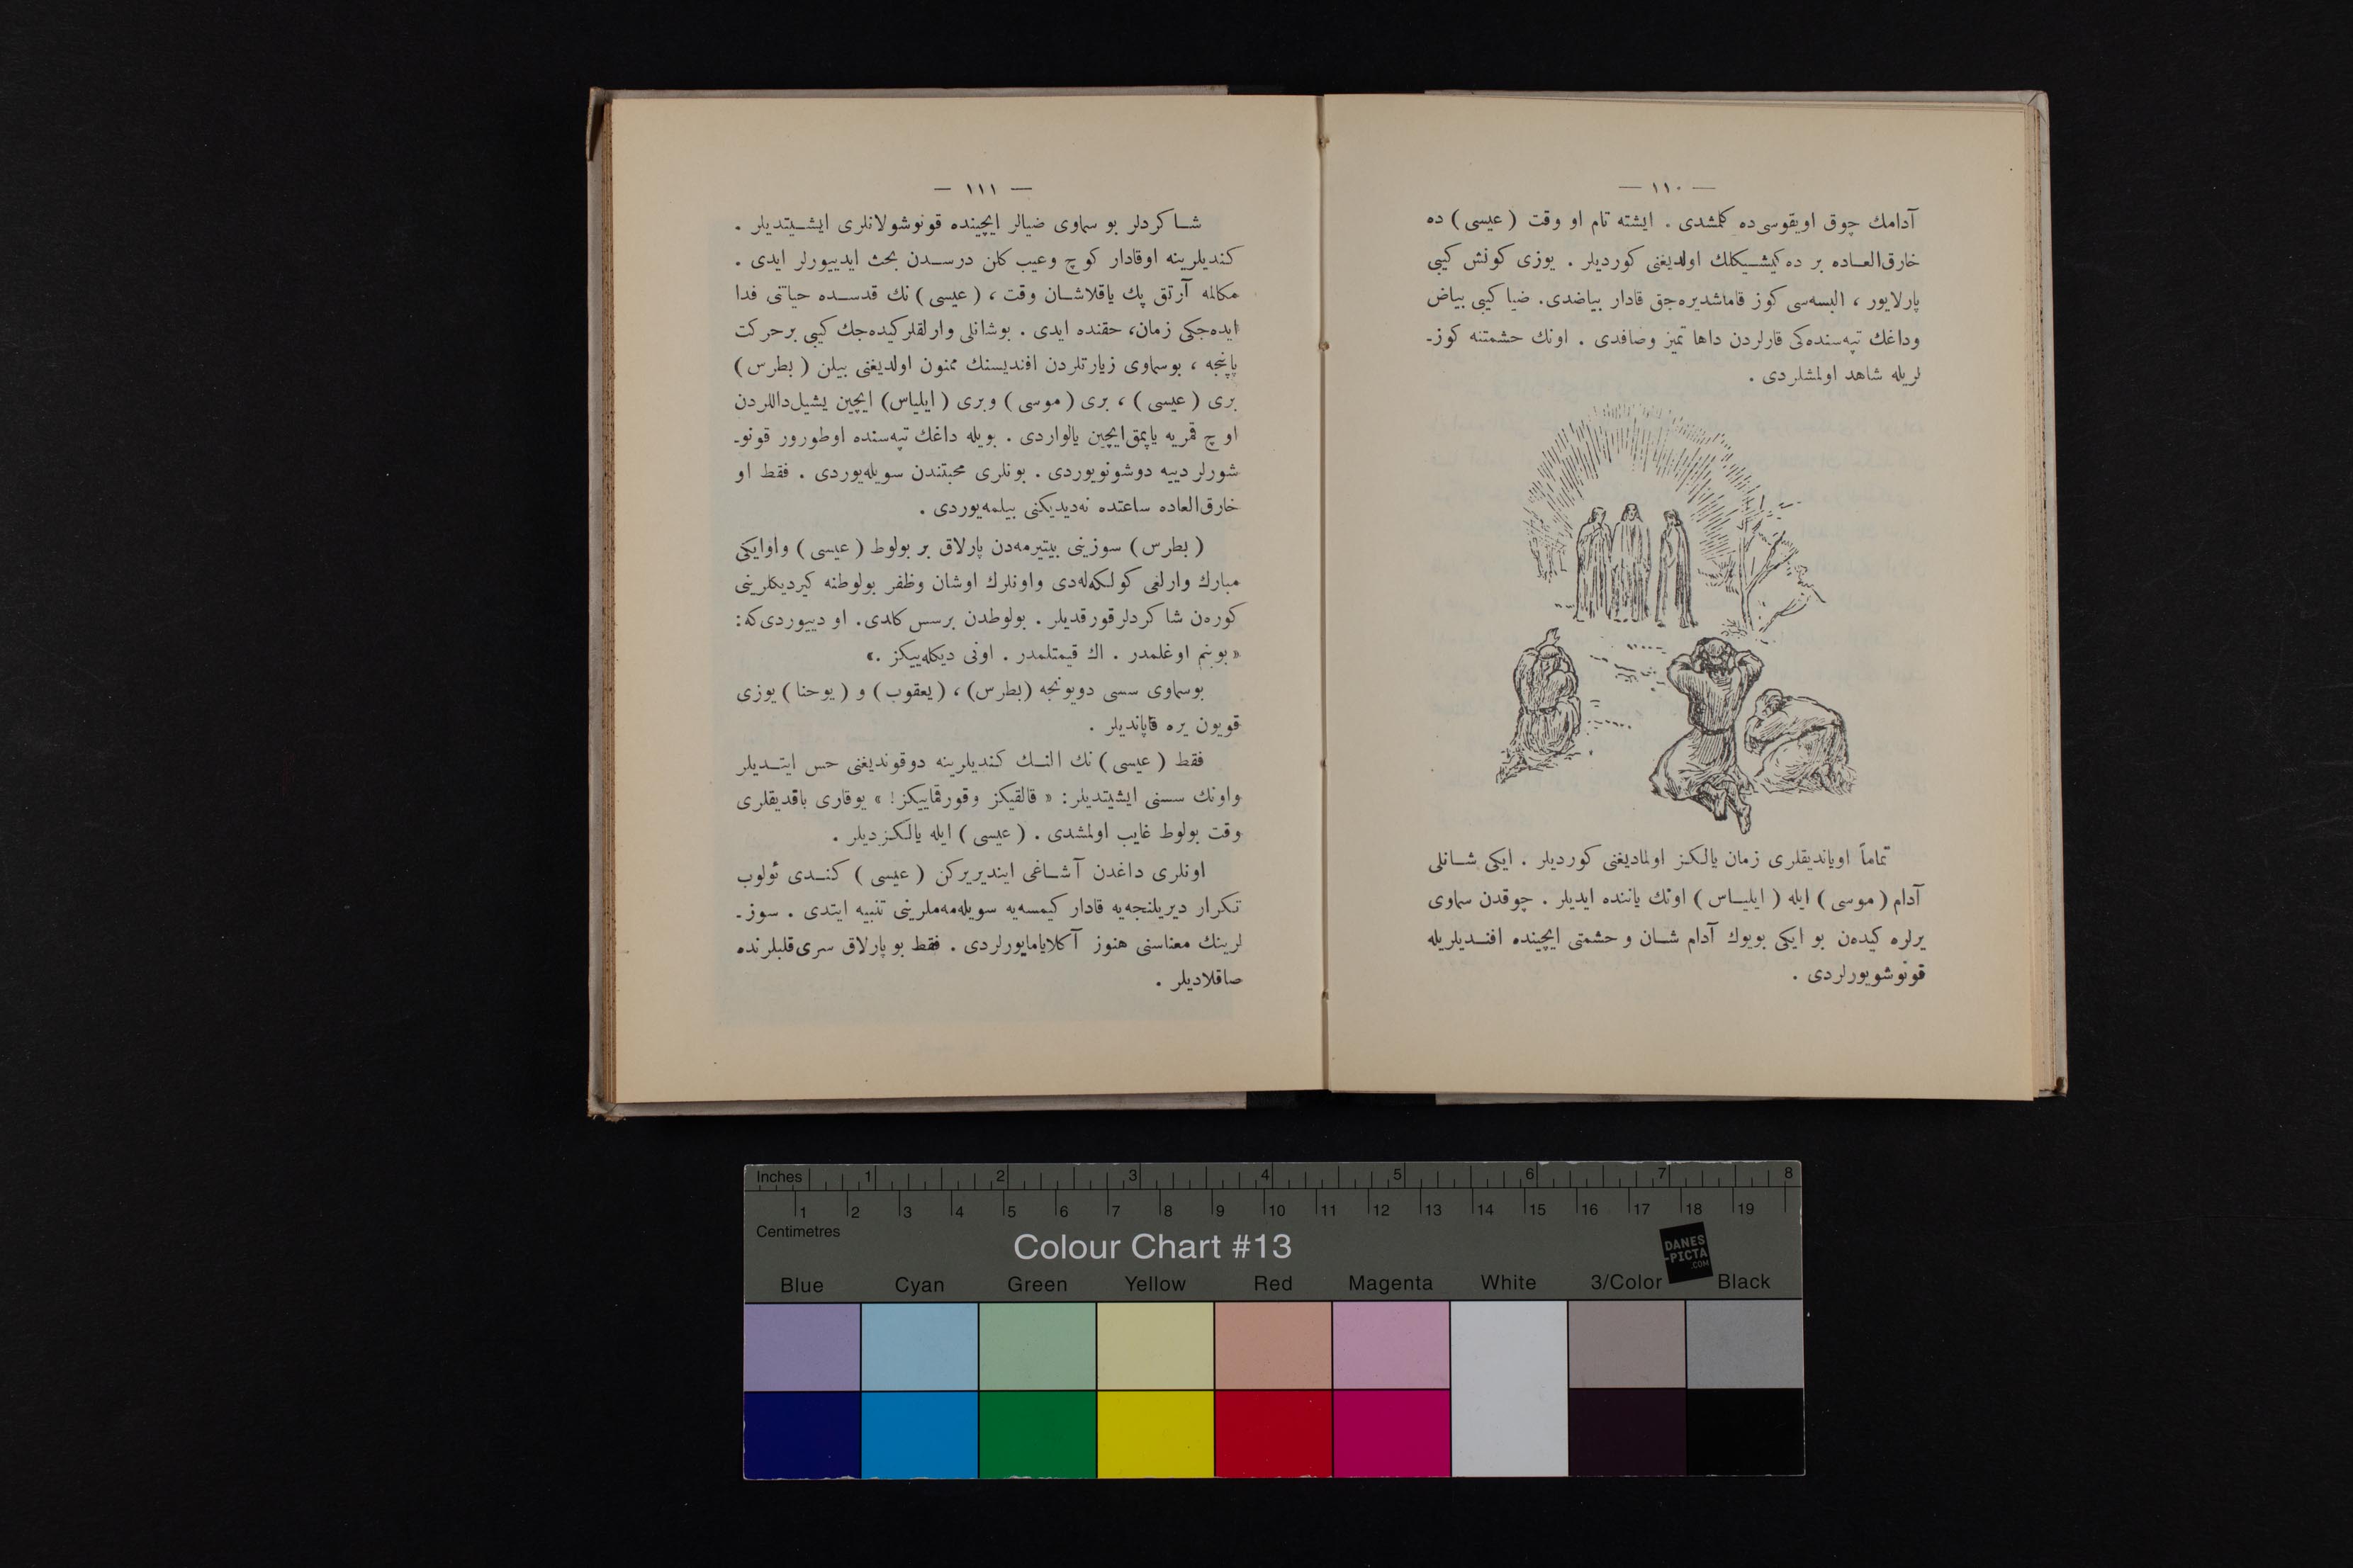 — ١١٠ —
آدامك چوق اويقوسى‌ده كلمشدى . ايشته تام او وقت ( عيسى ) ده
خارق‌العــاده بر ده كيشــيكلك اولديغنى كورديلر . يوزى كونش كيبى
پارلايور ، البسه‌سى كوز قاماشديره‌جق قادار بياضدى. ضيا كيبى بياض
وداغك تپه‌سنده‌كى قارلردن داها تميز وصافدى . اونك حشمتنه كوز-
لريله شاهد اولمشلردى .
تماماً اوياندیقلرى زمان يالكز اولماديغنى كورديلر . ايكى شــانلى
آدام ( موسى ) ايله ( ايليــاس ) اونك ياننده ايديلر . چوقدن سماوى
يرلره كيده‌ن بو ايكى بويوك آدام شــان و حشمتى ايچينده افنــديلريله
قونوشويورلردى .
— ١١١ —
شــاكردلر بو سماوى ضيالر ايچينده قونوشولانلرى ايشــيتديلر .
كنديلرينه اوقادار كوچ وعيب كلن درســدن بحث ايدييورلر ايدى .
مكالمه آرتق پك ياقلاشــان وقت ، ( عيسى ) نك قدســده حياتنى فدا
ايده‌جكى زمان، حقنده ايدى . بوشانلى وارلقلر كيده‌جك كيبى بر حركت
ياپنجه ، بوسماوى زيارتلردن افنديسنك ممنون اولديغنى بيلن ( بطرس )
برى ( عيسى ) ، برى ( موسى ) وبرى ( ايلياس ) ايچين يشيل‌داللردن
اوچ قمريه ياپمق‌ايچين يالواردى . بويله داغك تپه‌سنده اوطورور قونو-
شورلر دييه دوشونويوردى . بونلرى محبتندن سويله‌يوردى . فقط او
خارق‌العاده ساعتده نه‌ديديكنى بيلمه‌يوردى .
( بطرس ) سوزينى بيتيرمه‌دن پارلاق بر بولوط ( عيسى ) واوايكى
مبارك وارلغى كولكه‌له‌دى واونلرك اوشان وظفر بولوطنه كيرديكلرينى
كوره‌ن شاكردلر قورقديلر . بولوطدن برسس كلدى. او دييوردى‌كه:
« بوبنم اوغلمدر . اك قيمتلمدر . اونى ديكله‌ييكز .»
بوسماوى سسى دويونجه (بطرس) ، ( يعقوب ) و ( يوحنا ) يوزى
قويون يره قاپانديلر .
فقط ( عيسى ) نك النــك كنديلرينه دوقونديغنى حس ايتــديلر
واونك سسنى ايشيتديلر: « قالقيكز وقورقماييكز! » يوقارى باقديقلرى
وقت بولوط غايب اولمشدى . ( عيسى ) ايله يالكزديلر .
اونلرى داغدن آشــاغى اينديريركن ( عيسى ) كنــدى ئولوب
تكرار ديريلنجه‌يه قادار كيمسه‌يه سويله‌مه‌ملرينى تنبيه ايتدى . سوز-
لرينك معناسنى هنوز آكلايامايورلردى . فقط بو پارلاق سرى قلبلرنده
صاقلاديلر .
Inches 1 2 3 4 5 6 7 8
1 2 3 4 5 6 7 8 9 10 11 12 13 14 15 16 17 18 19
Centimetres
Colour Chart #13
DANES
-PICTA
.COM
Blue Cyan Green Yellow Red Magenta White 3/Color Black